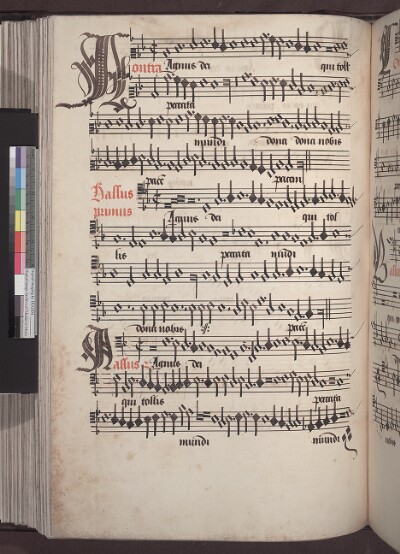 Contra Agnus dei qui toll
peccata
mundi dona dona nobis
pace pacem
Bassus
primus
Agnus dei qui tol
lis peccata mūdi
dona nobis pace
Bassus 2 Agnus dei
qui tollis peccata
mūndi mūndi